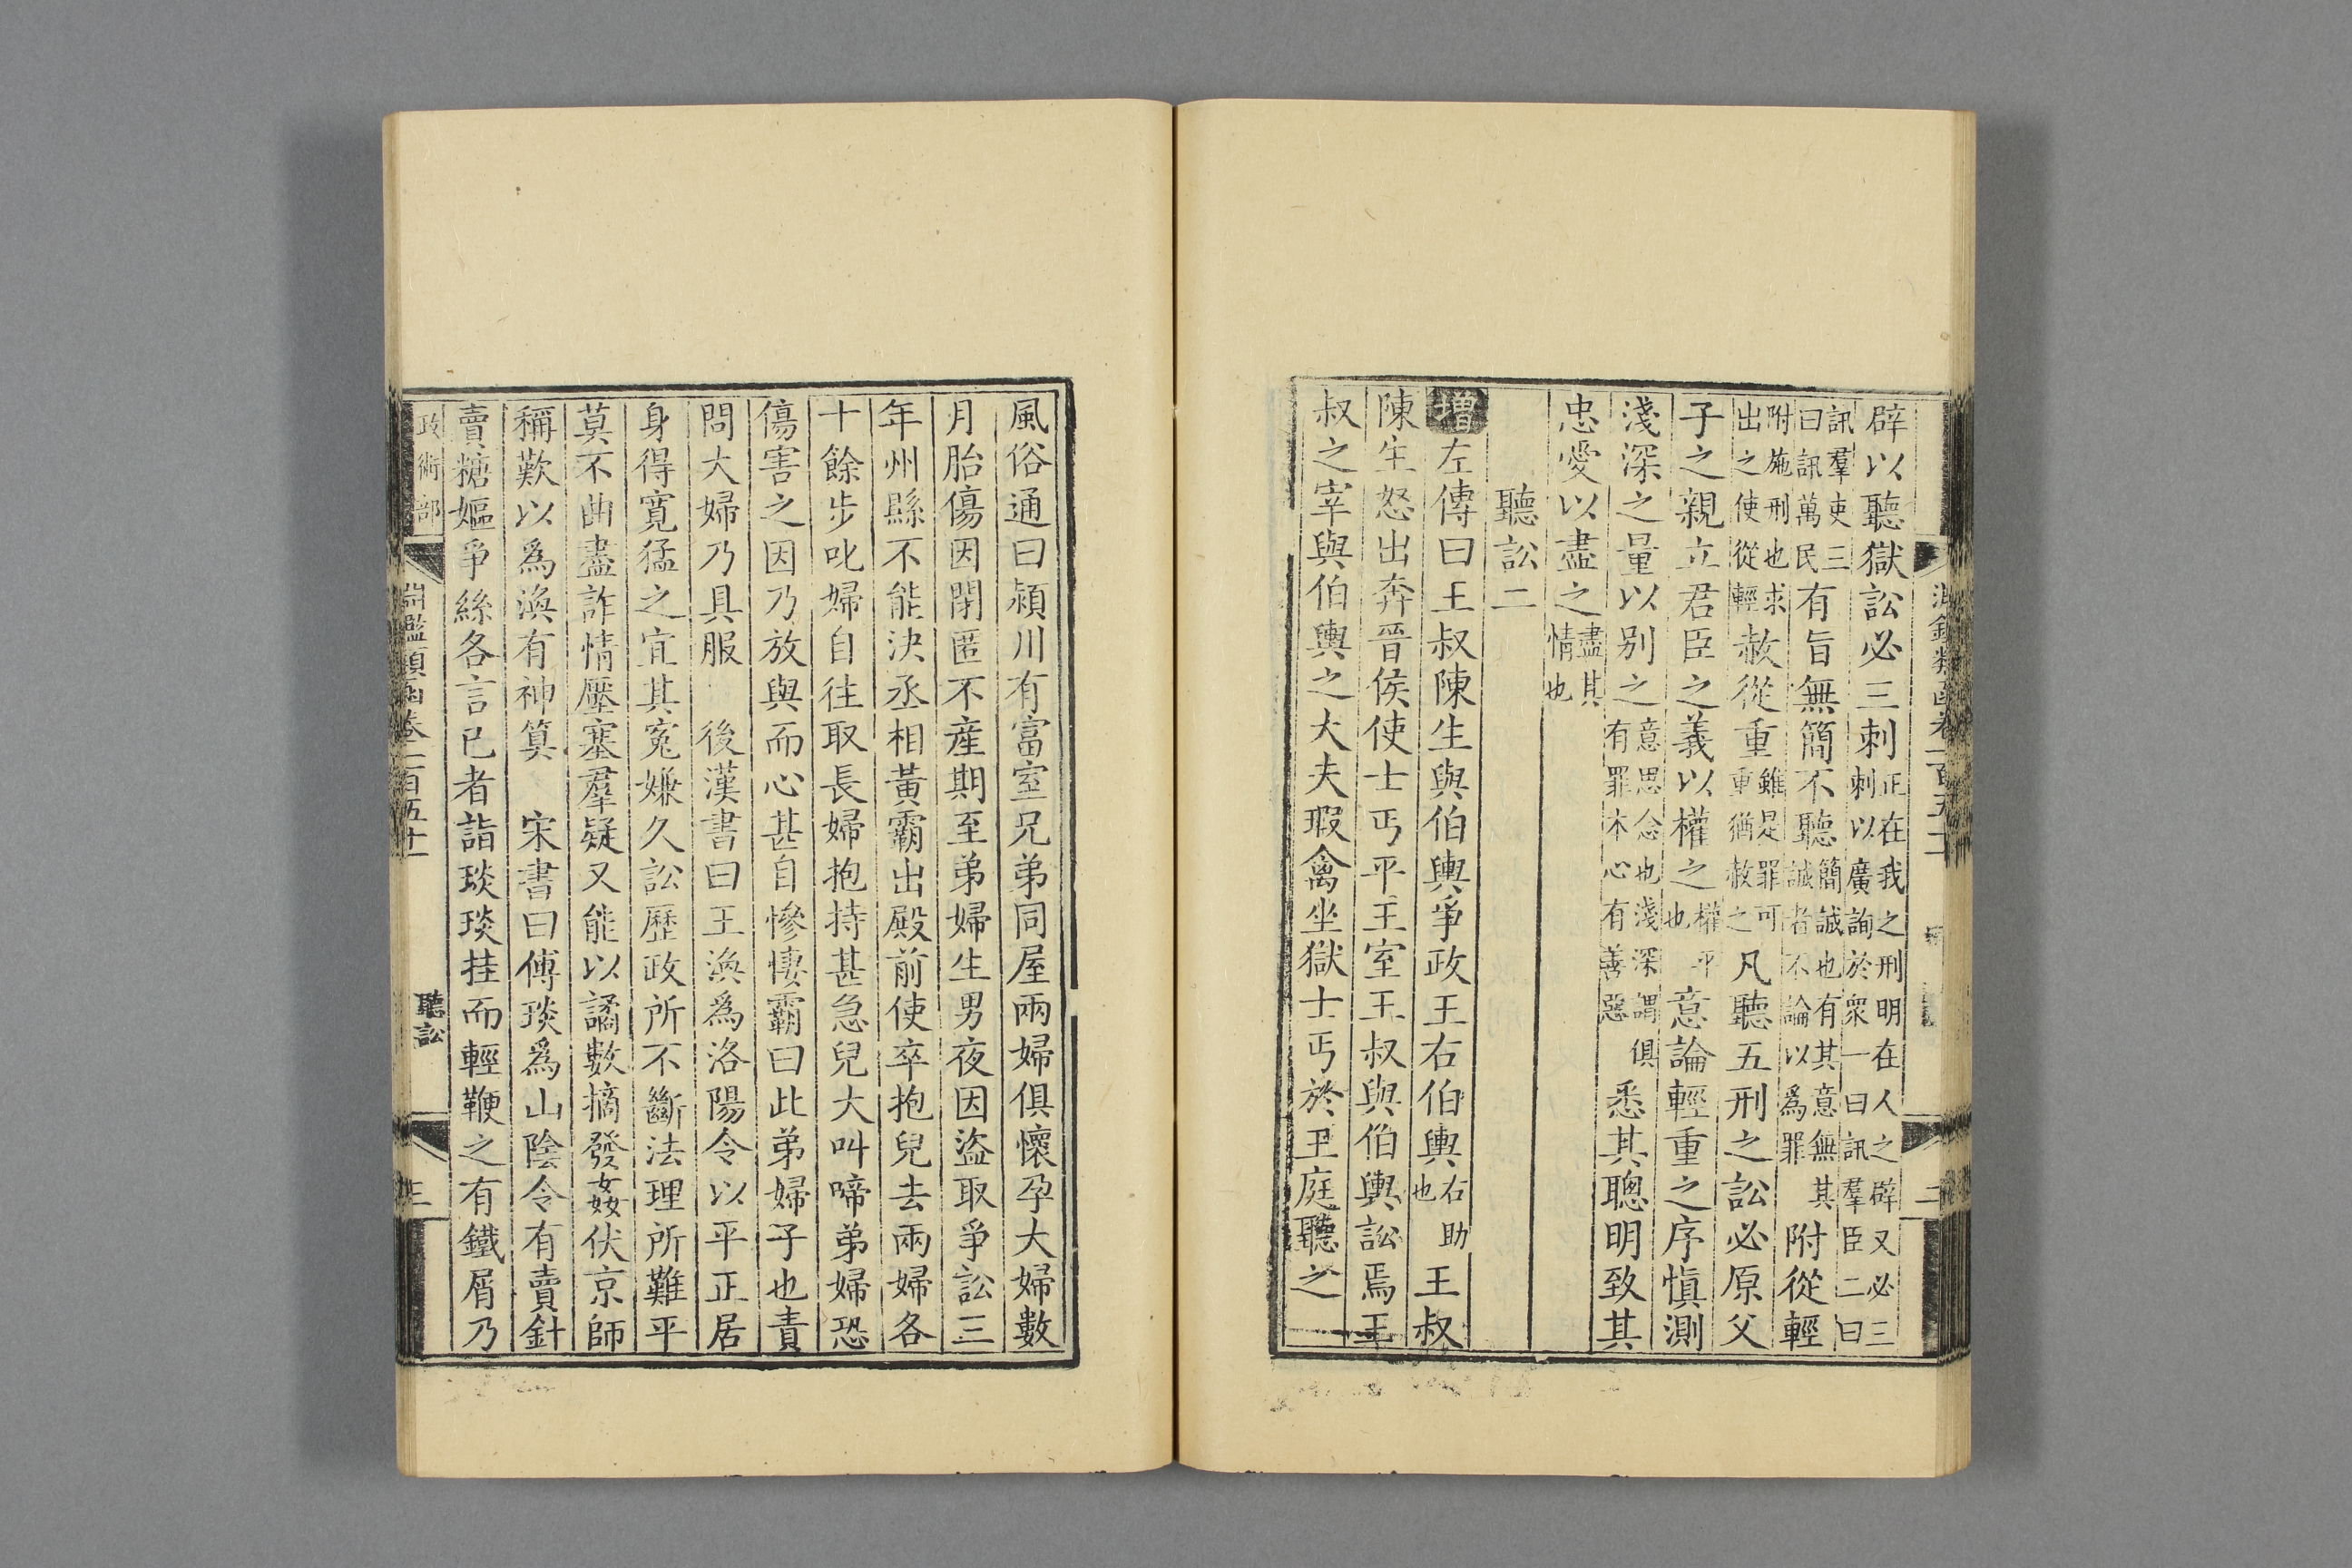 辟以聽獄訟必三刺正在我之刑明在人之辟又必三刺以廣詢於衆一曰訊羣臣二曰
訊羣吏三曰訊萬民有旨無簡不聽簡誠也有其意無其誠者不論以爲罪附從輕
附施刑也求出之使從輕赦從重雖是罪可重猶赦之凡聽五刑之訟必原父
子之親立君臣之義以權之權平也意論輕重之序慎測
淺深之量以别之意思念也淺深謂俱有罪本心有善惡悉其聰明致其
忠愛以盡之盡其情也
聽訟二
增左傳曰王叔陳生與伯輿爭政王右伯輿右助也王叔
陳生怒出奔晉侯使士丐平王室王叔與伯輿訟焉王
叔之宰與伯輿之大夫瑕禽坐獄士丐於王庭聽之
風俗通曰潁川有富室兄弟同屋兩婦俱懷孕大婦數
月胎傷因閉匿不産期至弟婦生男夜因盜取爭訟三
年州縣不能決丞相黃霸出殿前使卒抱兒去兩婦各
十餘步叱婦自往取長婦抱持甚急兒大叫啼弟婦恐
傷害之因乃放與而心甚自慘悽霸曰此弟婦子也責
問大婦乃具服 後漢書曰王渙爲洛陽令以平正居
身得寬猛之宜其寃嫌久訟歷政所不斷法理所難平
莫不曲盡詐情壓塞羣疑又能以譎數摘發姦伏京師
稱歎以爲渙有神筭 宋書曰傅琰爲山陰令有賣針
賣糖嫗爭絲各言已者詣琰琰挂而輕鞭之有鐵屑乃
政術部 淵鑑類函卷一百五十一 聽訟 三